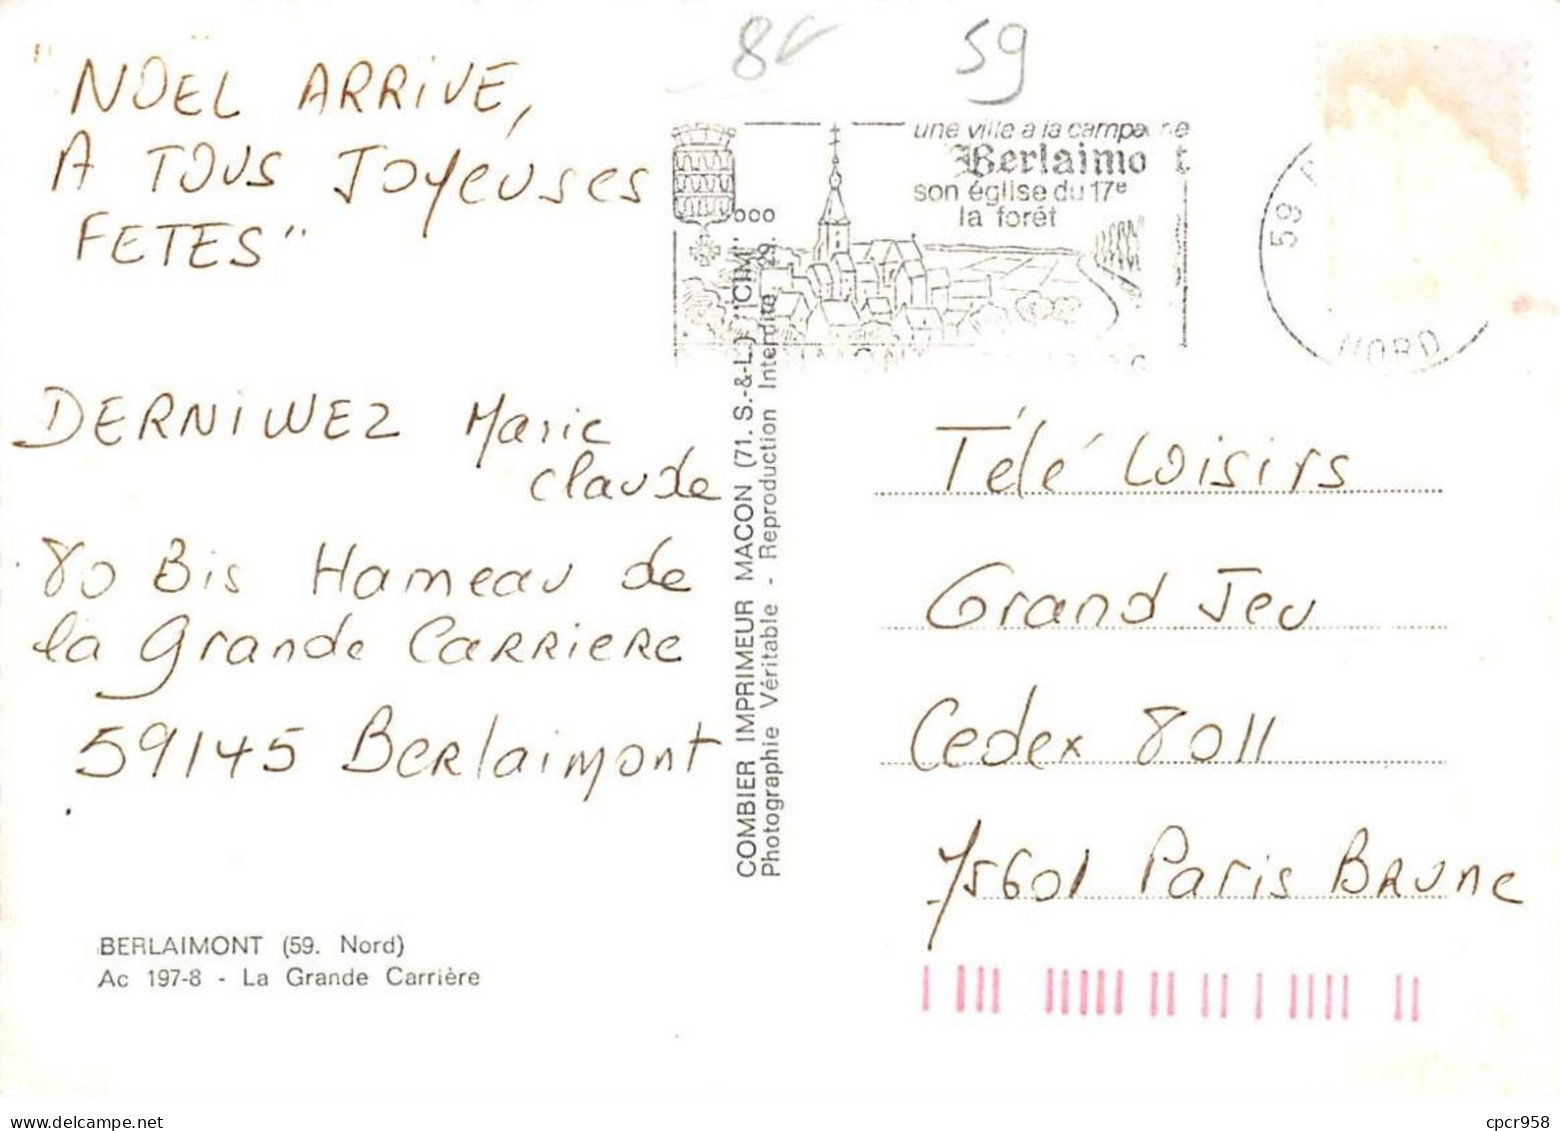 8€
59
" NOEL ARRIVE,
A TOUS Joyeuses
FETES"
une ville à la campa ne
Berlaimo t
son église du 17e
la forêt
59
NORD
DERNIWEZ Marie
claude
80 Bis Hameau de
la Grande CARRIERE
59145 Berlaimont
COMBIER IMPRIMEUR MACON (71. S.-&-L.) "CIM"
Photographie Véritable - Reproduction Interdite
Télé Loisirs
Grand Jeu
Cedex 8011
75601 Paris BRUNE
BERLAIMONT (59. Nord)
Ac 197-8 - La Grande Carrière
www.delcampe.net
cpcr958